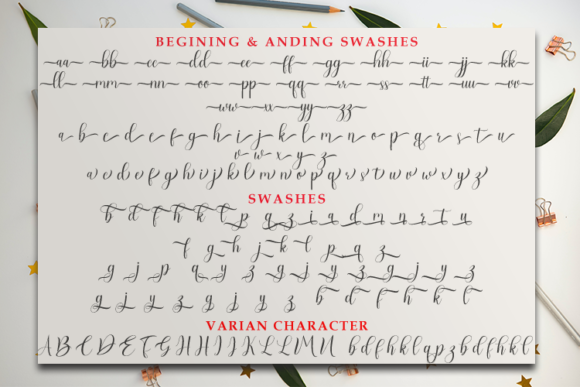 BEGINING & ANDING SWASHES
aa bb cc dd ee ff gg hh ii jj kk
ll mm nn oo pp qq rr ss tt uu vv
ww xx yy zz
a b c d e f g h i j k l m n o p q r s t u
v w x y z
SWASHES
f g h j k l p q z
g j p q y z g j y z g j y z
g j y z g j y z b d f h k l
VARIAN CHARACTER
A B C D E F G H H I J K L L M N b d f h k l q p z b d f h k l